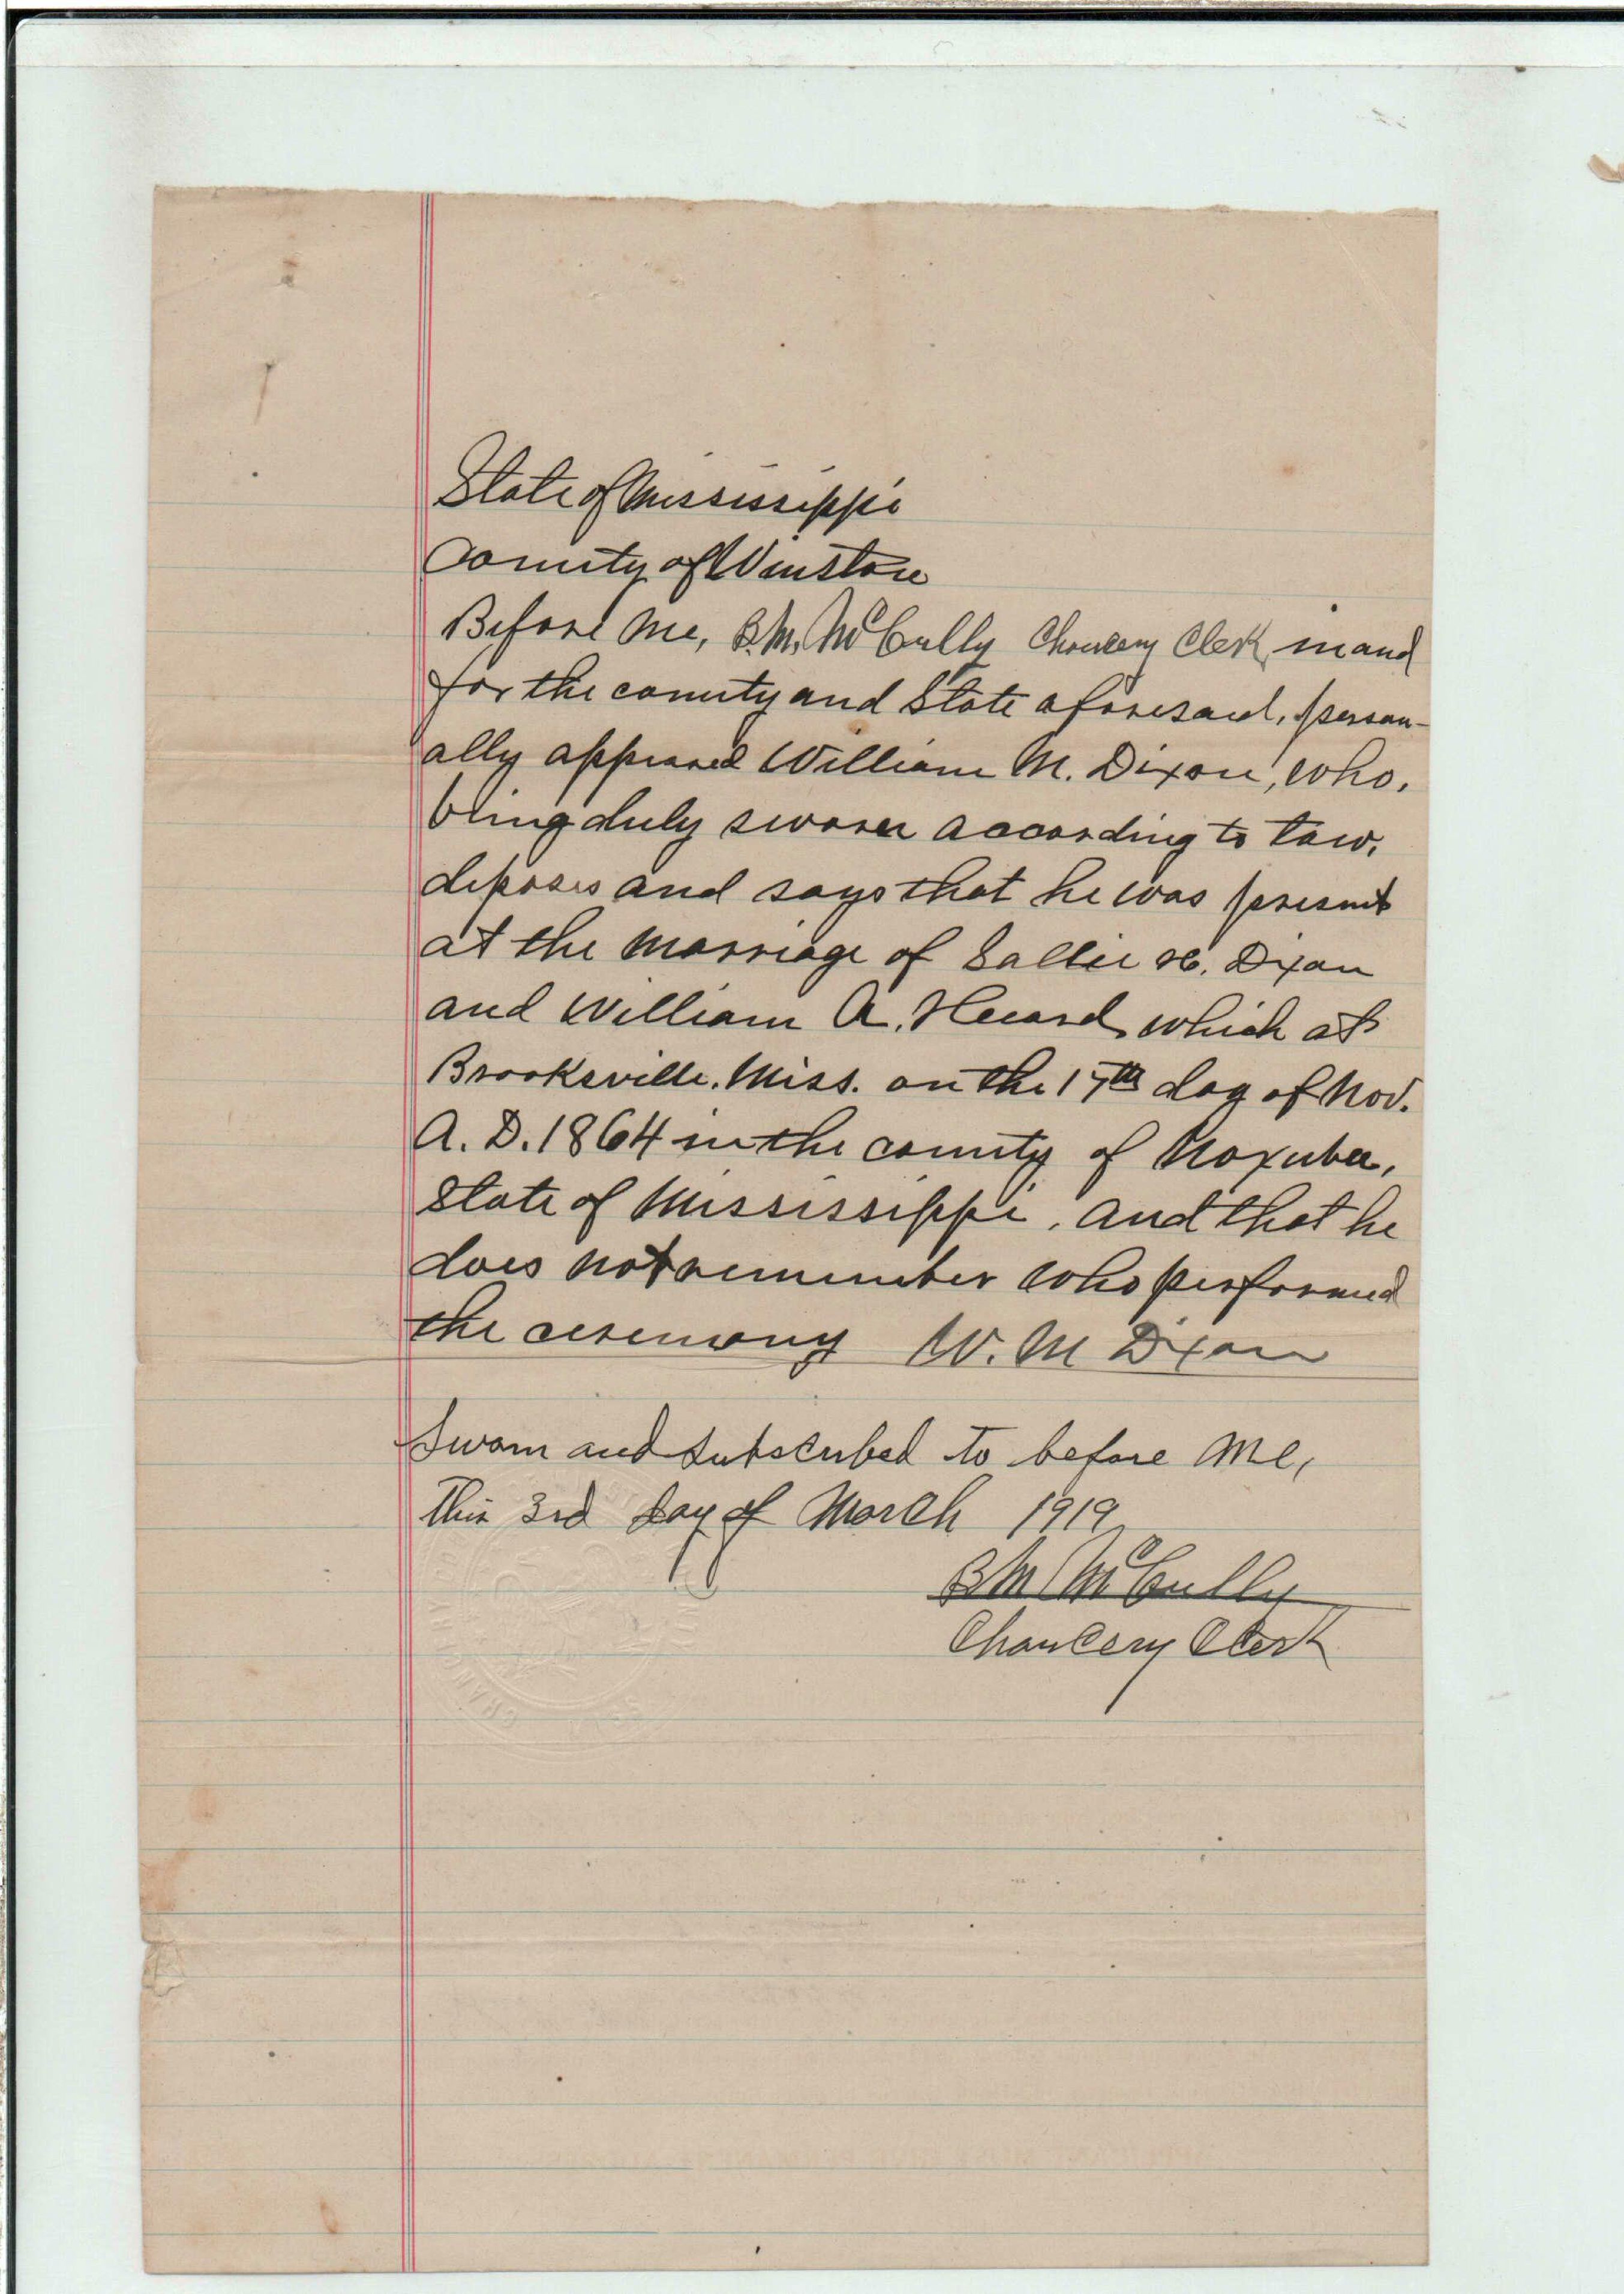 State of Mississippi
County of Winston
Before Me, B.M. McCully Chancery Clerk, in and
for the county and State aforesaid, person-
ally appeared William M. Dixon, who,
being duly sworn according to law,
deposes and says that he was present
at the marriage of Sallie H. Dixon
and William A. Heard which at
Brooksville, Miss. on the 17th day of Nov.
A. D. 1864 in the county of Noxubee,
State of Mississippi, and that he
does not remember who performed
the ceremony W. M Dixon
Sworn and subscribed to before me,
This 3rd day of March 1919
B M McCully
Chancery Clerk